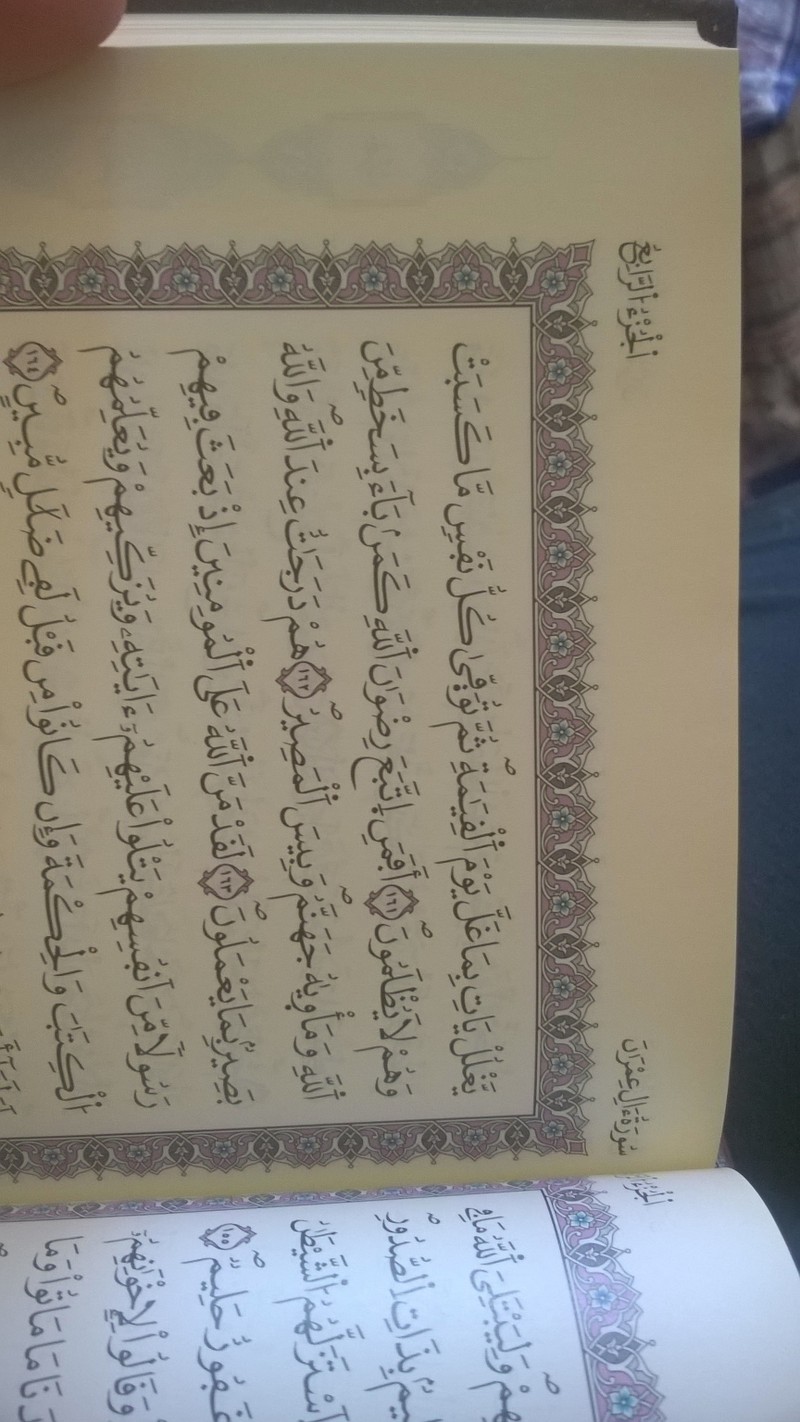 سُورَةُ ءَالِ عِمْرَانَ
اَ۬لْجُزْءُ اُ۬لرَّابِعُ
يَّغْلُلْ يَاتِ بِمَا غَلَّ يَوْمَ اَ۬لْقِيَٰمَةِ ثُمَّ تُوَفّ۪يٰ كُلُّ نَفْسٖ مَّا كَسَبَتْ
وَهُمْ لَا يُظْلَمُونَ ١٦١ أَفَمَنِ اِ۪تَّبَعَ رِضْوَٰنَ اَ۬للَّهِ كَمَنۢ بَآءَ بِسَخَطٖ مِّنَ
اَ۬للَّهِ وَمَأْو۪يٰهُ جَهَنَّمُ وَبِيسَ اَ۬لْمَصِيرُ ١٦٢ هُمْ دَرَجَٰتٌ عِندَ اَ۬للَّهِ وَاللَّهُ
بَصِيرُۢ بِمَا يَعْمَلُونَ ١٦٣ لَقَدْ مَنَّ اَ۬للَّهُ عَلَى اَ۬لْمُومِنِينَ إِذْ بَعَثَ فِيهِمْ
رَسُولاٗ مِّنَ اَنفُسِهِمْ يَتْلُواْ عَلَيْهِمُۥٓ ءَايَٰتِهِۦ وَيُزَكِّيهِمْ وَيُعَلِّمُهُمُ
اُ۬لْكِتَٰبَ وَالْحِكْمَةَ وَإِن كَانُواْ مِن قَبْلُ لَفِے ضَلَٰلٖ مُّبِينٍ ١٦٤
وَلِيَبْتَلِيَ اَ۬للَّهُ مَا فِے
بِذَاتِ اِ۬لصُّدُورِ
اَ۪سْتَزَلَّهُمُ اُ۬لشَّيْطَٰنُ
غَفُورٌ حَلِيمٞ ١٥٥
وَقَالُواْ لِإِخْوَٰنِهِمُۥٓ
مَا مَاتُواْ وَمَا